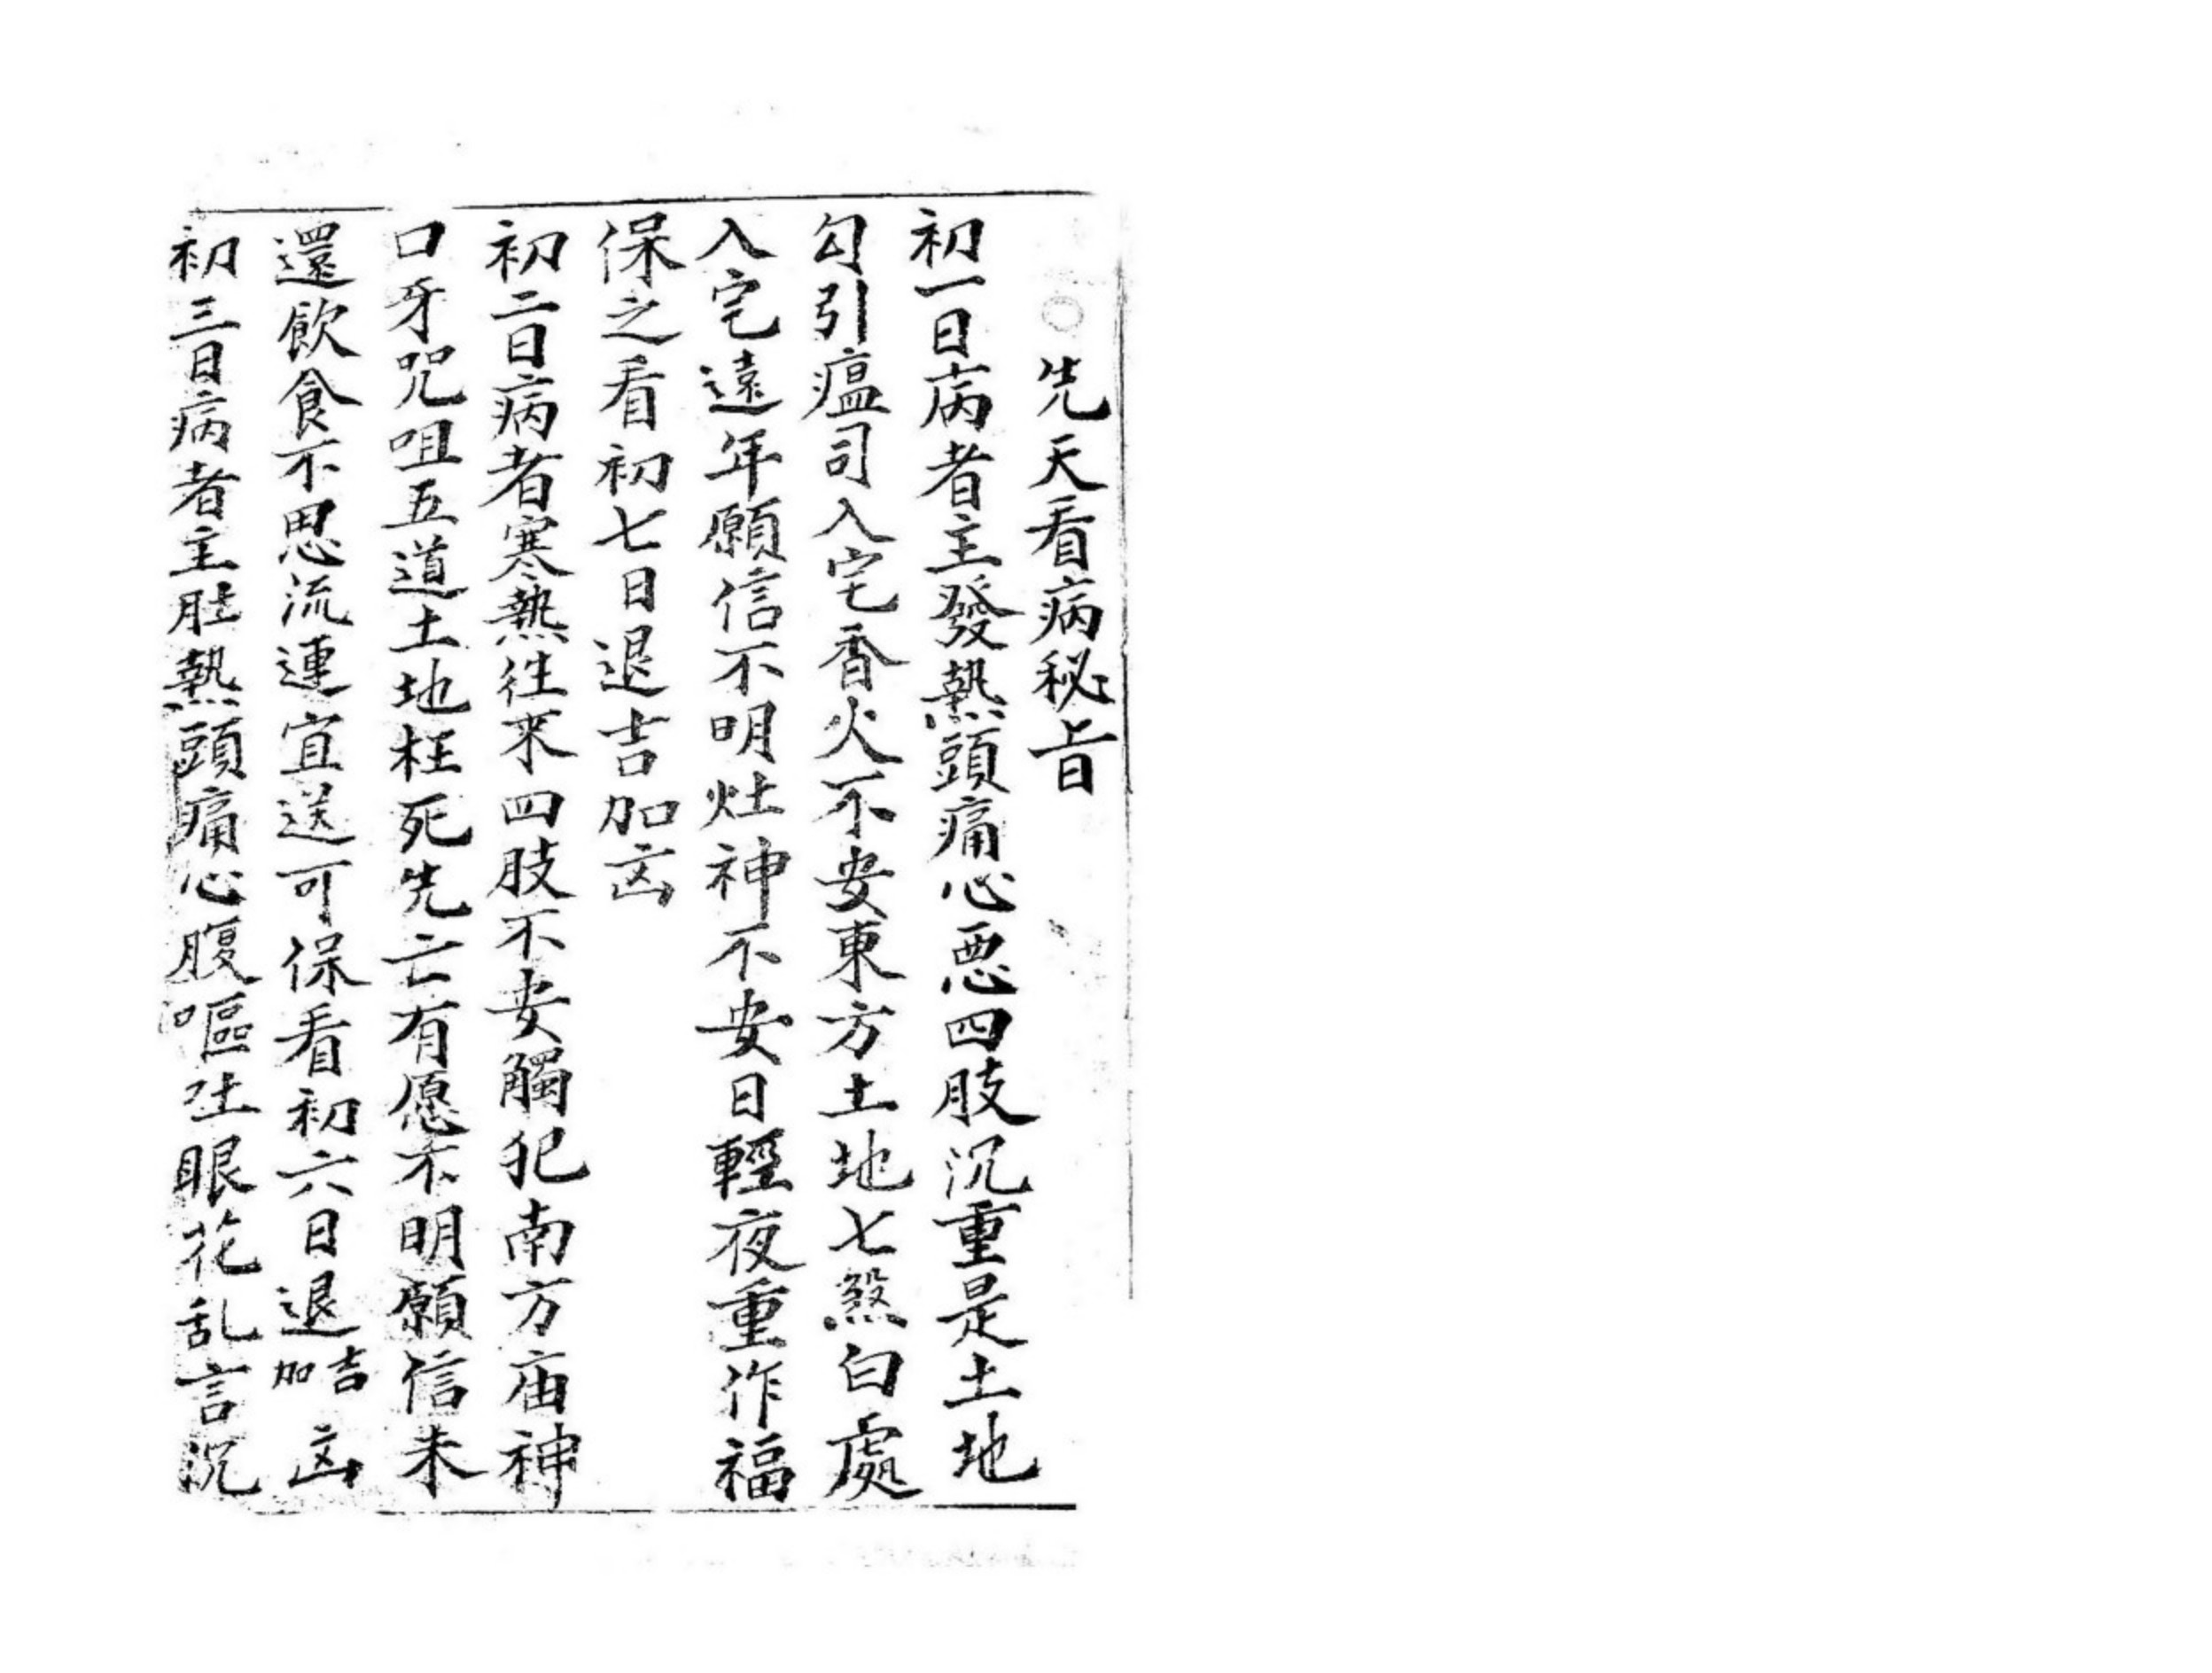 先天看病秘旨
初一日病者主發熱頭痛心悪四肢沉重是土地
勾引瘟司入宅香火不安東方土地七煞白處
入宅遠年願信不明灶神不安日輕夜重作福
保之看初七日退吉加凶
初二日病者寒熱往来四肢不安觸犯南方庙神
口牙咒咀五道土地枉死先亡有愿不明願信未
還飲食不思流連宜送可保看初六日退吉加凶
初三日病者主肚熱頭痛心腹嘔吐眼花乱言沉